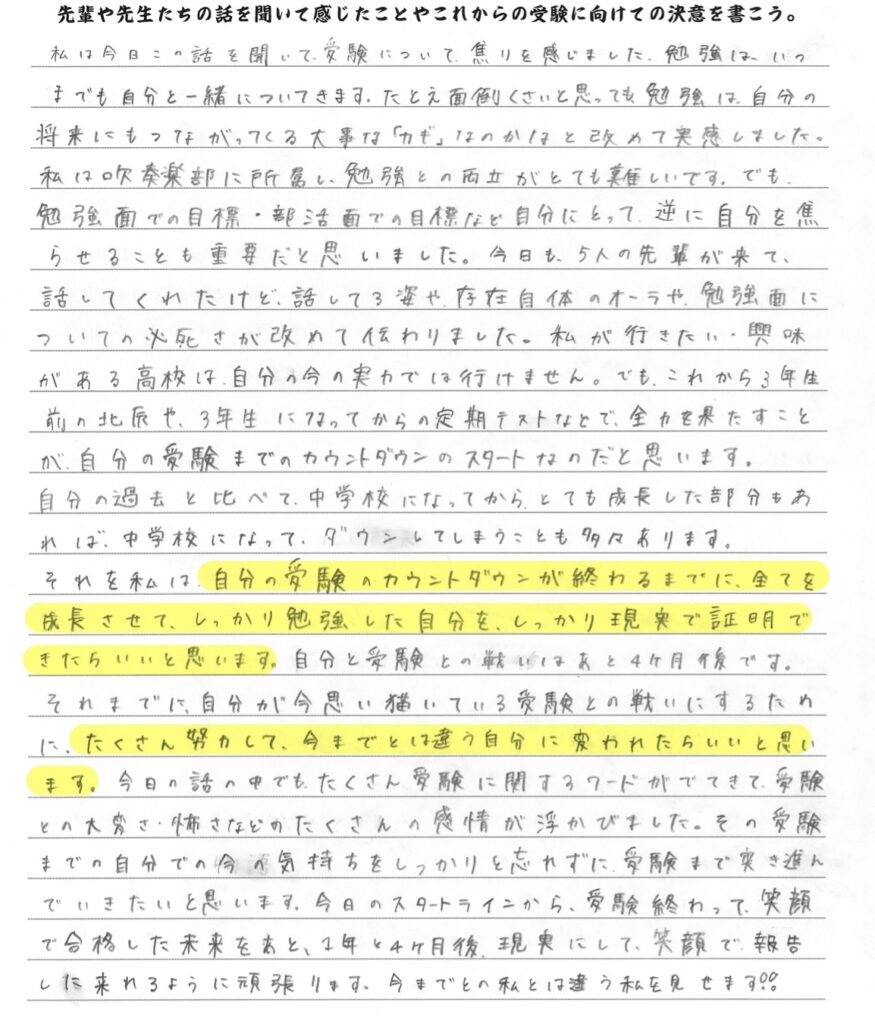 先輩や先生たちの話を聞いて感じたことやこれからの受験に向けての決意を書こう。
私は今日この話を聞いて、受験について、焦りを感じました。勉強は、いつ
までも自分と一緒についてきます。たとえ面倒くさいと思っても、勉強は、自分の
将来にもつながってくる大事な「カギ」なのかなと改めて実感しました。
私は吹奏楽部に所属し、勉強との両立がとても難しいです。でも、
勉強面での目標・部活面での目標など自分にとって、逆に自分を焦
らせることも重要だと思いました。今日も、5人の先輩が来て、
話してくれたけど、話してる姿や、存在自体のオーラや、勉強面に
ついての必死さが改めて伝わりました。私が行きたい・興味
がある高校は、自分の今の実力では行けません。でも、これから3年生
前の北辰や、3年生になってからの定期テストなどで、全力を果たすこと
が、自分の受験までのカウントダウンのスタートなのだと思います。
自分の過去と比べて、中学校になってから、とても成長した部分もあ
れば、中学校になって、ダウンしてしまうことも多々あります。
それを私は、自分の受験のカウントダウンが終わるまでに、全てを
成長させて、しっかり勉強した自分を、しっかり現実で証明で
きたらいいと思います。自分と受験との戦いはあと4ヶ月後です。
それまでに、自分が今思い描いている受験との戦いにするため
に、たくさん努力して、今までとは違う自分に変われたらいいと思い
ます。今日の話の中でも、たくさん受験に関するワードがでてきて、受験
との大変さ・怖さなどのたくさんの感情が浮かびました。その受験
までの自分での今の気持ちをしっかりと忘れずに、受験まで突き進ん
でいきたいと思います。今日のスタートラインから、受験終わって、笑顔
で合格した未来をあと、1年と4ヶ月後、現実にして、笑顔で、報告
した来れるように頑張ります。今までとの私とは違う私を見せます!!